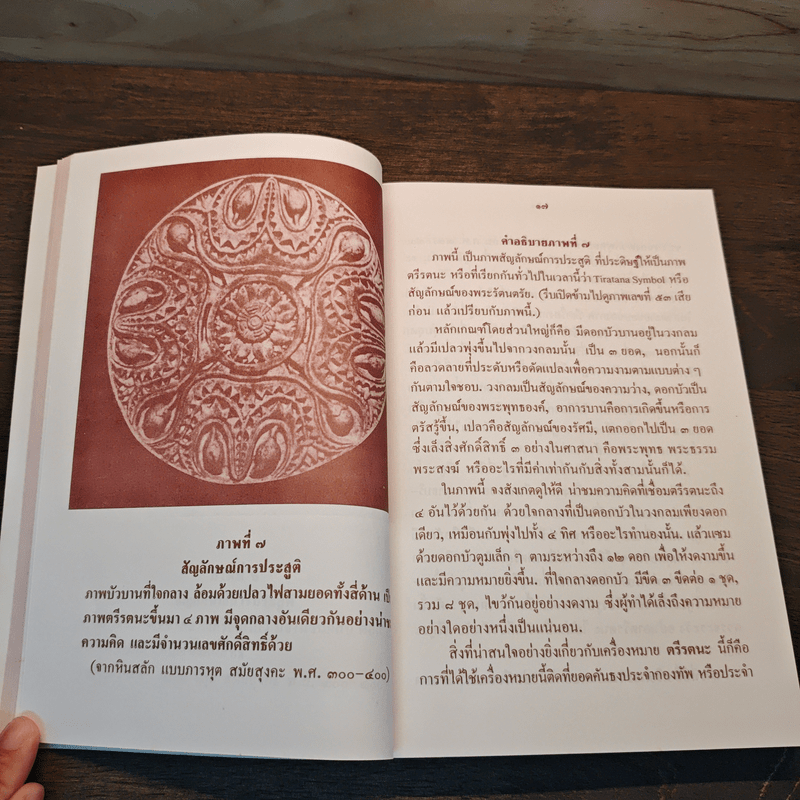 ภาพที่ ๗
สัญลักษณ์การประสูติ
ภาพบัวบานที่ใจกลาง ล้อมด้วยเปลวไฟสามยอดทั้งสี่ด้าน
ภาพตรีรตนะขึ้นมา ๔ ภาพ มีจุดกลางอันเดียวกันอย่าง
ความคิด และมีจำนวนเลขศักดิ์สิทธิ์ด้วย
(จากหินสลัก แบบภารหุต สมัยสุงคะ พ.ศ. ๓๐๐-๔๐๐)
๑๗
คำอธิบายภาพที่ ๗
ภาพนี้ เป็นภาพสัญลักษณ์การประสูติ ที่ประดิษฐ์ให้เป็นภาพ
ตรีรตนะ หรือที่เรียกกันทั่วไปในเวลานี้ว่า Tiratana Symbol หรือ
สัญลักษณ์ของพระรัตนตรัย. (รีบเปิดข้ามไปดูภาพเลขที่ ๕๓ เสีย
ก่อน แล้วเปรียบกับภาพนี้.)
หลักเกณฑ์โดยส่วนใหญ่ก็คือ มีดอกบัวบานอยู่ในวงกลม
แล้วมีเปลวพุ่งขึ้นไปจากวงกลมนั้น เป็น ๓ ยอด, นอกนั้นก็
คือลวดลายที่ประดับหรือดัดแปลงเพื่อความงามตามแบบต่าง ๆ
กันตามใจชอบ. วงกลมเป็นสัญลักษณ์ของความว่าง, ดอกบัวเป็น
สัญลักษณ์ของพระพุทธองค์, อาการบานคือการเกิดขึ้นหรือการ
ตรัสรู้ขึ้น, เปลวคือสัญลักษณ์ของรัศมี, แตกออกไปเป็น ๓ ยอด
ซึ่งเล็งสิ่งศักดิ์สิทธิ์ ๓ อย่างในศาสนา คือพระพุทธ พระธรรม
พระสงฆ์ หรืออะไรที่มีค่าเท่ากันกับสิ่งทั้งสามนั้นก็ได้.
ในภาพนี้ จงสังเกตดูให้ดี น่าชมความคิดที่เชื่อมตรีรตนะถึง
๔ อันไว้ด้วยกัน ด้วยใจกลางที่เป็นดอกบัวในวงกลมเพียงดอก
เดียว, เหมือนกับพุ่งไปทั้ง ๔ ทิศ หรืออะไรทำนองนั้น. แล้วแซม
ด้วยดอกบัวตูมเล็ก ๆ ตามระหว่างถึง ๑๒ ดอก เพื่อให้งดงามขึ้น
และมีความหมายยิ่งขึ้น. ที่ใจกลางดอกบัว มีขีด ๓ ขีดต่อ ๑ ชุด,
รวม ๘ ชุด, ไขว้กันอยู่อย่างงดงาม ซึ่งผู้ทำได้เล็งถึงความหมาย
อย่างใดอย่างหนึ่งเป็นแน่นอน.
สิ่งที่น่าสนใจอย่างยิ่งเกี่ยวกับเครื่องหมาย ตรีรตนะ นี้ก็คือ
การที่ได้ใช้เครื่องหมายนี้ติดที่ยอดคันธงประจำกองทัพ หรือประจำ